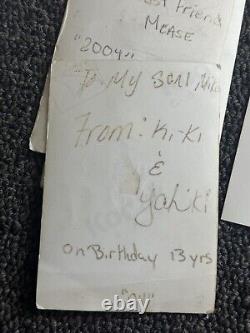 Friend
Mcase
"2004"
To My Son
From: Ki-Ki
&
Yahki
on Birthday 13 yrs